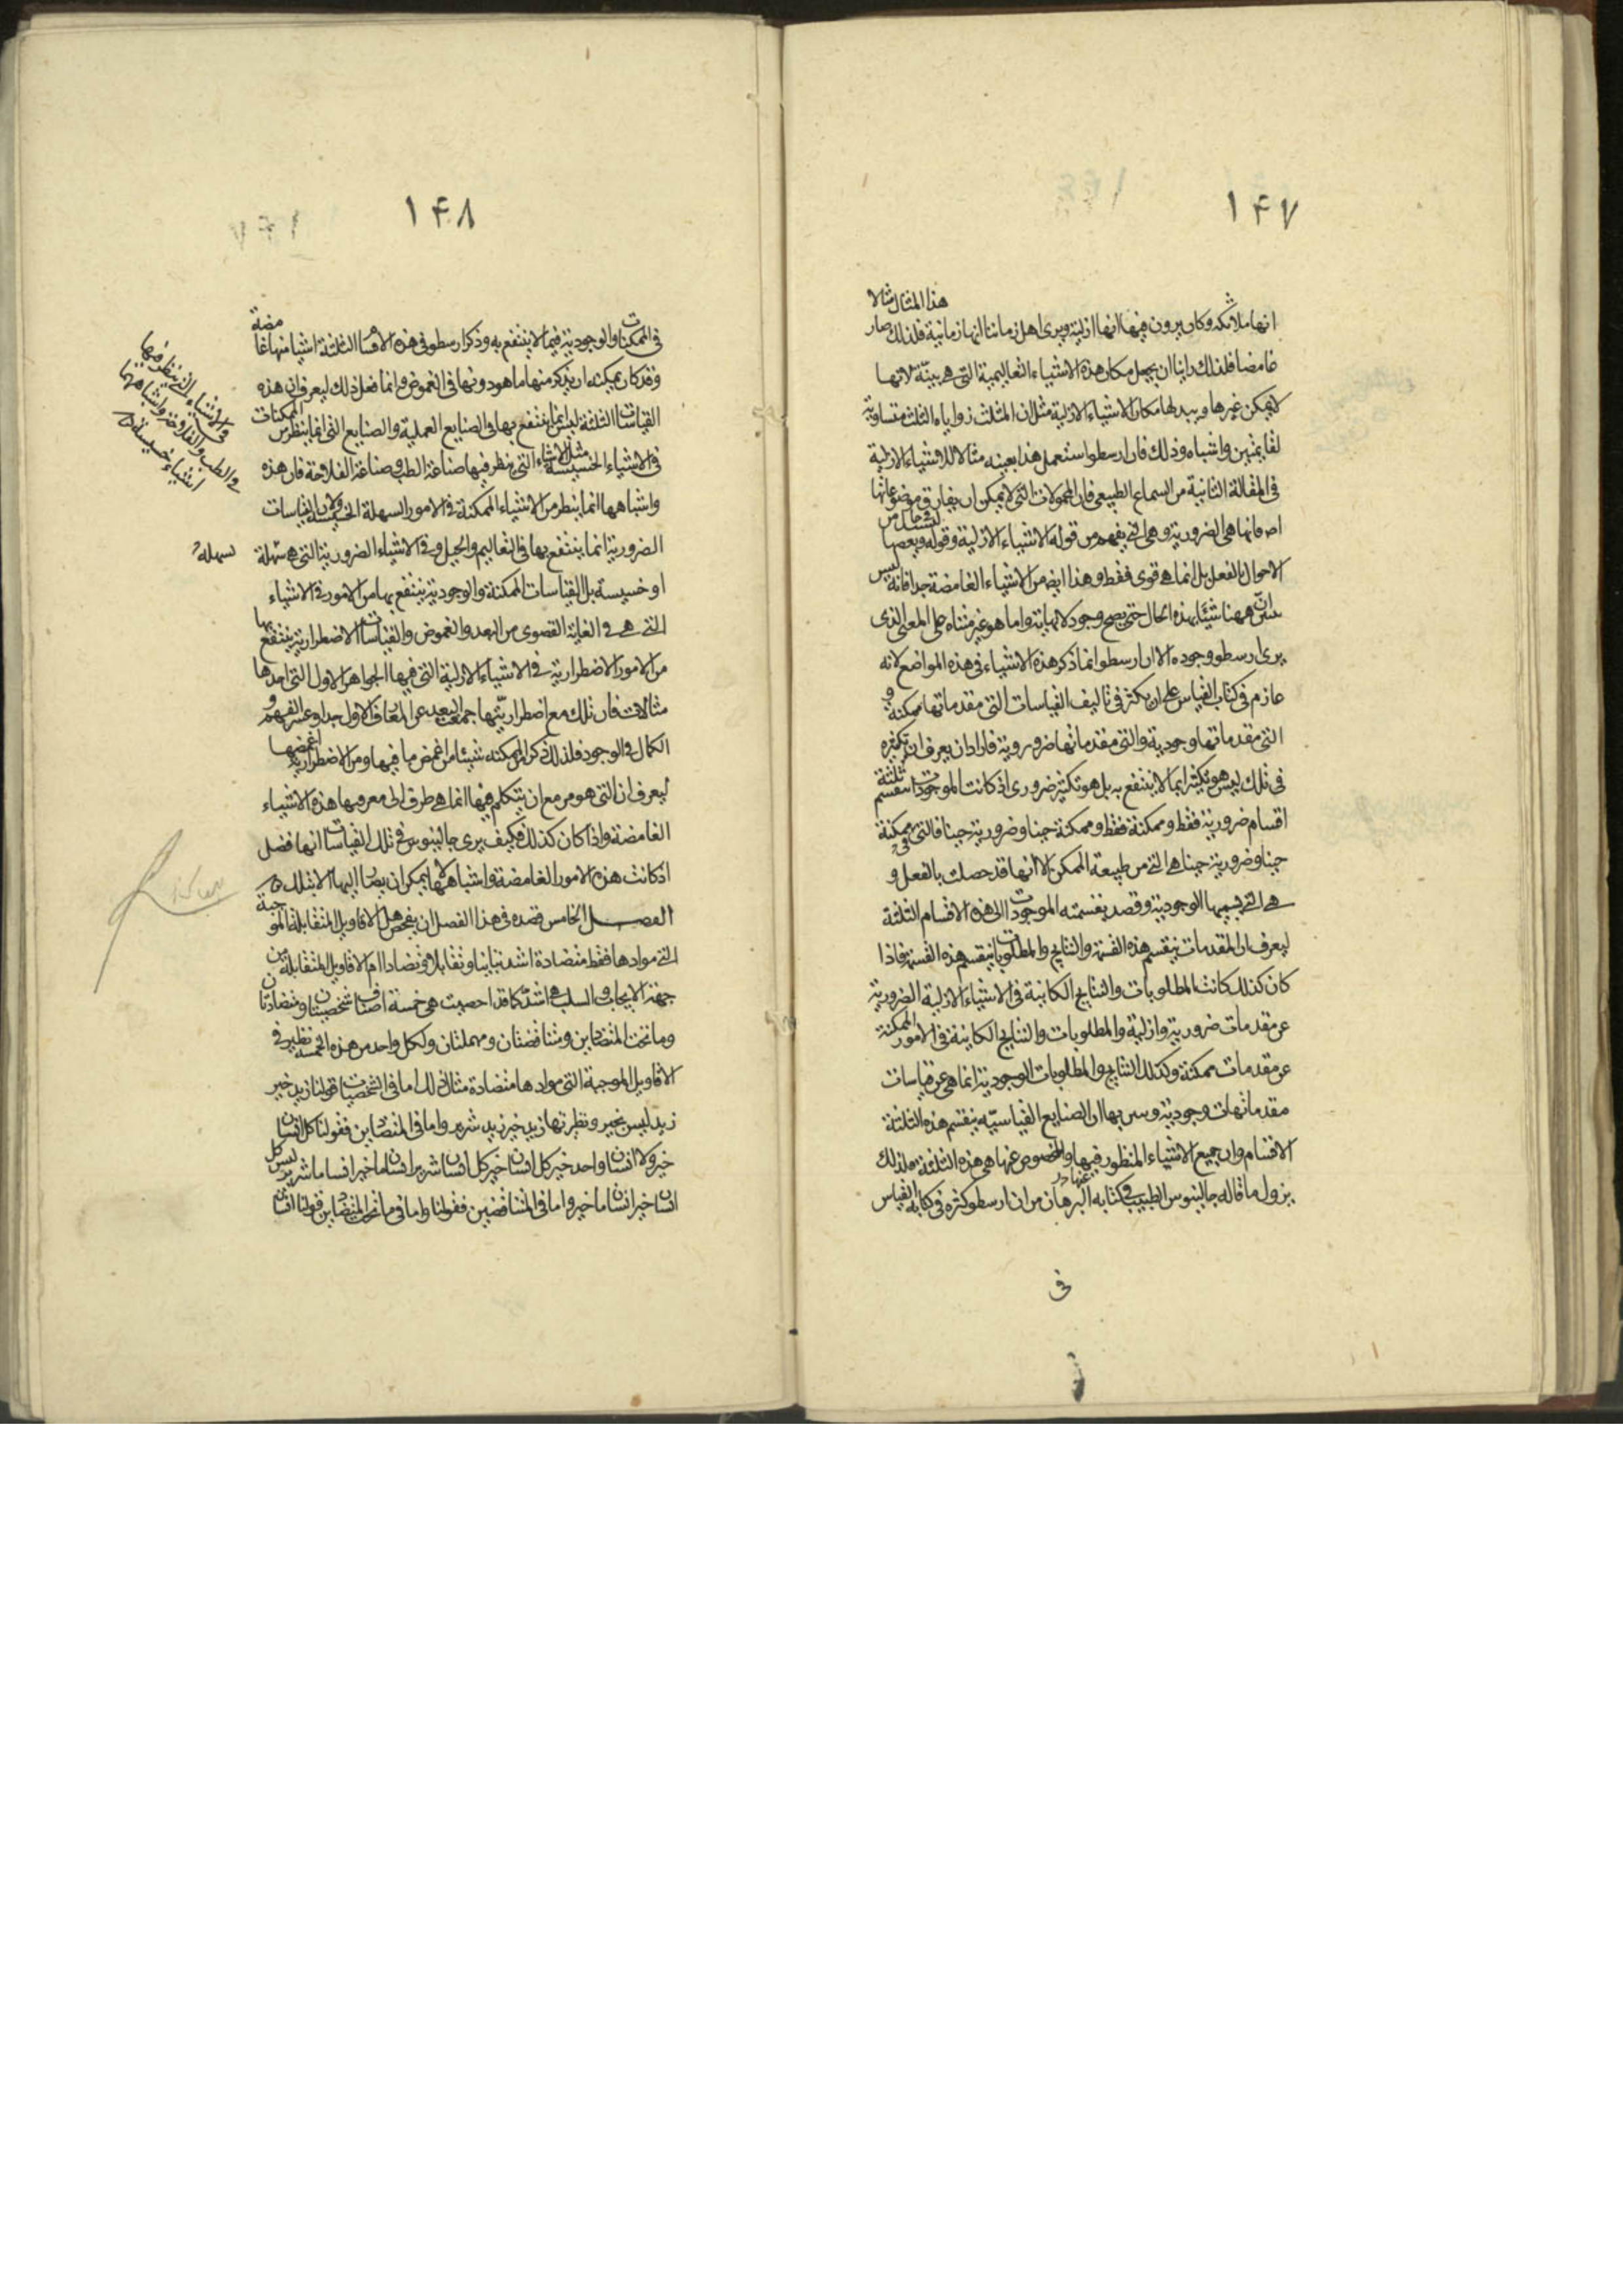 ١۴٧
هذا المثال مثالا
انها ملائكة وكان يرون فيها انها ازلية ويرى اهل زماننا انها زمانية فلذلك صار
غامضا فلذلك راينا ان يجعل مكان هذه الاشياء التعاليمية التى هى بينة لانها
لا يمكن غيرها ويبدلها مكان الاشياء الازلية مثل ان المثلث زواياه الثلث متساوية
لقايمتين واشباه ذلك فان ارسطو استعمل هذا بعينه مثالا للاشياء الازلية
فى المقالة الثانية من السماع الطبيعى فان المحمولات التى لا يمكن ان يفارق موضوعاتها
اصلا فانها هى الضرورية وهى التى يفهم من قوله الاشياء الازلية وقوله وبعضها
الاحوال بالفعل بل انما هى قوى فقط وهذا ايضا من الاشياء الغامضة جدا فانه ليس
بيّن انّ ههنا شيئا بهذه الحال حتى يصح وجود لا نهاية واما هو غير متناه على المعنى الذى
يرى ارسطو وجوده الا ان ارسطو انما ذكر هذه الاشياء فى هذه المواضع لانه
عازم فى كتاب القياس على ان يكثر فى تاليف القياسات التى مقدماتها ممكنة و
التى مقدماتها وجودية والتى مقدماتها ضرورية فاراد ان يعرف ان تكثيره
فى تلك ليس هو تكثيرا بما لا ينتفع به بل هو تكثير ضرورى اذ كانت الموجودات تنقسم ثلثة
اقسام ضرورية فقط وممكنة فقط وممكنة حينا وضرورية حينا فالتى هى ممكنة
حينا وضرورية حينا هى التى من طبيعة الممكن الا انها قد حصلت بالفعل و
هى التى يسميها الوجودية وقصد بقسمته الموجودات الى هذه الاقسام الثلثة
ليعرف ان المقدمات ينقسم هذه القسمة والنتايج والمطلوبات ينقسم هذه القسمة فاذا
كان كذلك كانت المطلوبات والنتايج الكاينة فى الاشياء الازلية الضرورية
عن مقدمات ضرورية وازلية والمطلوبات والنتايج الكاينة فى الامور الممكنة
عن مقدمات ممكنة وكذلك النتايج والمطلوبات الوجودية انما هى عن قياسات
مقدماتها وجودية وبين بها ان الصنايع القياسيّه ينقسم هذه الثلثة
الاقسام وان جميع الاشياء المنظور فيها والمفحوص عنها هى هذه الثلثة فلذلك
يزول ما قاله جالينوس الطبيب فى كتابه البرهان من ان ارسطو كثره فى كتابه القياس
فى
١۴٨
فى الممكنات والوجودية فيما لا ينتفع به وذكر ارسطو فى هذه الاقسام الثلثة اشيا منها غامضة
وقد كان يمكنه ان يذكر منها ما هو دونها فى الغموض وانما فعل ذلك ليعرف ان هذه
القياسات الثلثة ليس انما ينتفع بها فى الصنايع العملية والصنايع التى انما ينظر من الممكنات
فى الاشياء الخسيسة مثل الاشياء التى ينظر فيها صناعة الطب وصناعة الفلاحة فان هذه
واشباهها انما ينظر من الاشياء الممكنة فى الامور السهلة الخسيسة ولا ان القياسات
الضرورية انما ينتفع بها فى التعاليم والحيل وفى الاشياء الضرورية التى هى سهلة
او خسيسة بل القياسات الممكنة والوجودية ينتفع بها من الامور فى الاشياء
التى هى فى الغاية القصوى من البعد والغموض والقياسات الاضطرارية ينتفع بها
من الامور الاضطرارية فى الاشياء الازلية التى فيها الجواهر الاول التى احدها
مثالات فان تلك مع اضطراريتها جمعت البعد عن المعارف الاول جدا وعسر الفهم و
الكمال فى الوجود فلذلك ذكر من الممكنه شيئا من اغمض ما فيها ومن الاضطرارية اغمضها
ليعرف ان التى هو مزمع ان يتكلم فيها انما هى طرق الى معرفة هذه الاشياء
الغامضة واذا كان كذلك فكيف يرى جالينوس فى تلك القياسات انها فضل
اذ كانت هذه الامور الغامضة واشباهها لا يمكن ان يصار اليها الا بتلك
الفصــل الخامس قصده فى هذا الفصل ان يفحص هل الاقاويل المتقابلة الموجبة
التى موادها فقط متضادة اشد تباينا وتقابلا وتضادا ام الاقاويل المتقابلة من
جهة الايجاب والسلب هى اشد كما قد احصيت هى خمسة اصناف شخصيتان ومتضادتان
وما تحت المتضادين ومتناقضتان ومهملتان ولكل واحد من هذه الخمسة نظير فى
الاقاويل الموجبة التى موادها متضادة مثال ذلك اما فى الشخصيات قولنا زيد خير
زيد ليس بخير ونظيرتها زيد خير زيد شرير واما فى المتضادين فقولنا كل انسان
خير ولا انسان واحد خير كل انسان خير كل انسان شرير انسان ما خير انسان ما شرير ليس كل
انسان خير انسان ما خير واما فى المتناقضين فقولنا واما فى ما تحت المتضادين قولنا انسان
والاشياء التى ينظر فيها
فى الطب والفلاحة واشباهها
اشياء خسيسة
سهله